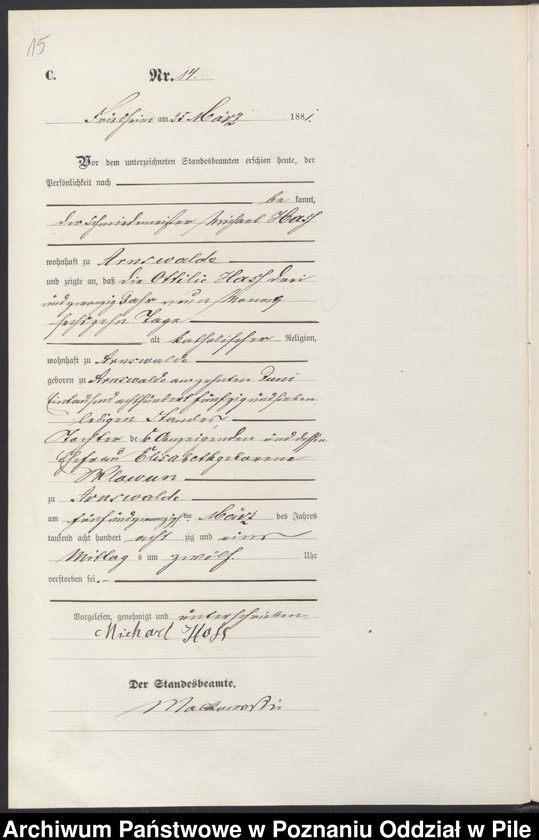 15
C. Nr. 14.
am 25 März 1881.
Vor dem unterzeichneten Standesbeamten erschien heute, der
Persönlichkeit nach
be kannt,
der Schmiedemeister Michael Hass
wohnhaft zu Arnswalde
und zeigte an, daß die Ottilie Hass drei
und zwanzig Jahr neun Monat
sechszehn Tage
alt katholischer Religion,
wohnhaft zu Arnswalde
geboren zu Arnswalde am zehnten Juni
Eintausend achthundert fünfzig und sieben
ledigen Standes,
Tochter des Anzeigenden und dessen
Ehefrau Elisabeth geborene
Klawun
zu Arnswalde
am fünfundzwanzigsten März des Jahres
tausend acht hundert acht zig und eins
Mittag s um zwölf Uhr
verstorben sei.
Vorgelesen, genehmigt und unterschrieben
Michael Hass
Der Standesbeamte.
Archiwum Państwowe w Poznaniu Oddział w Pile